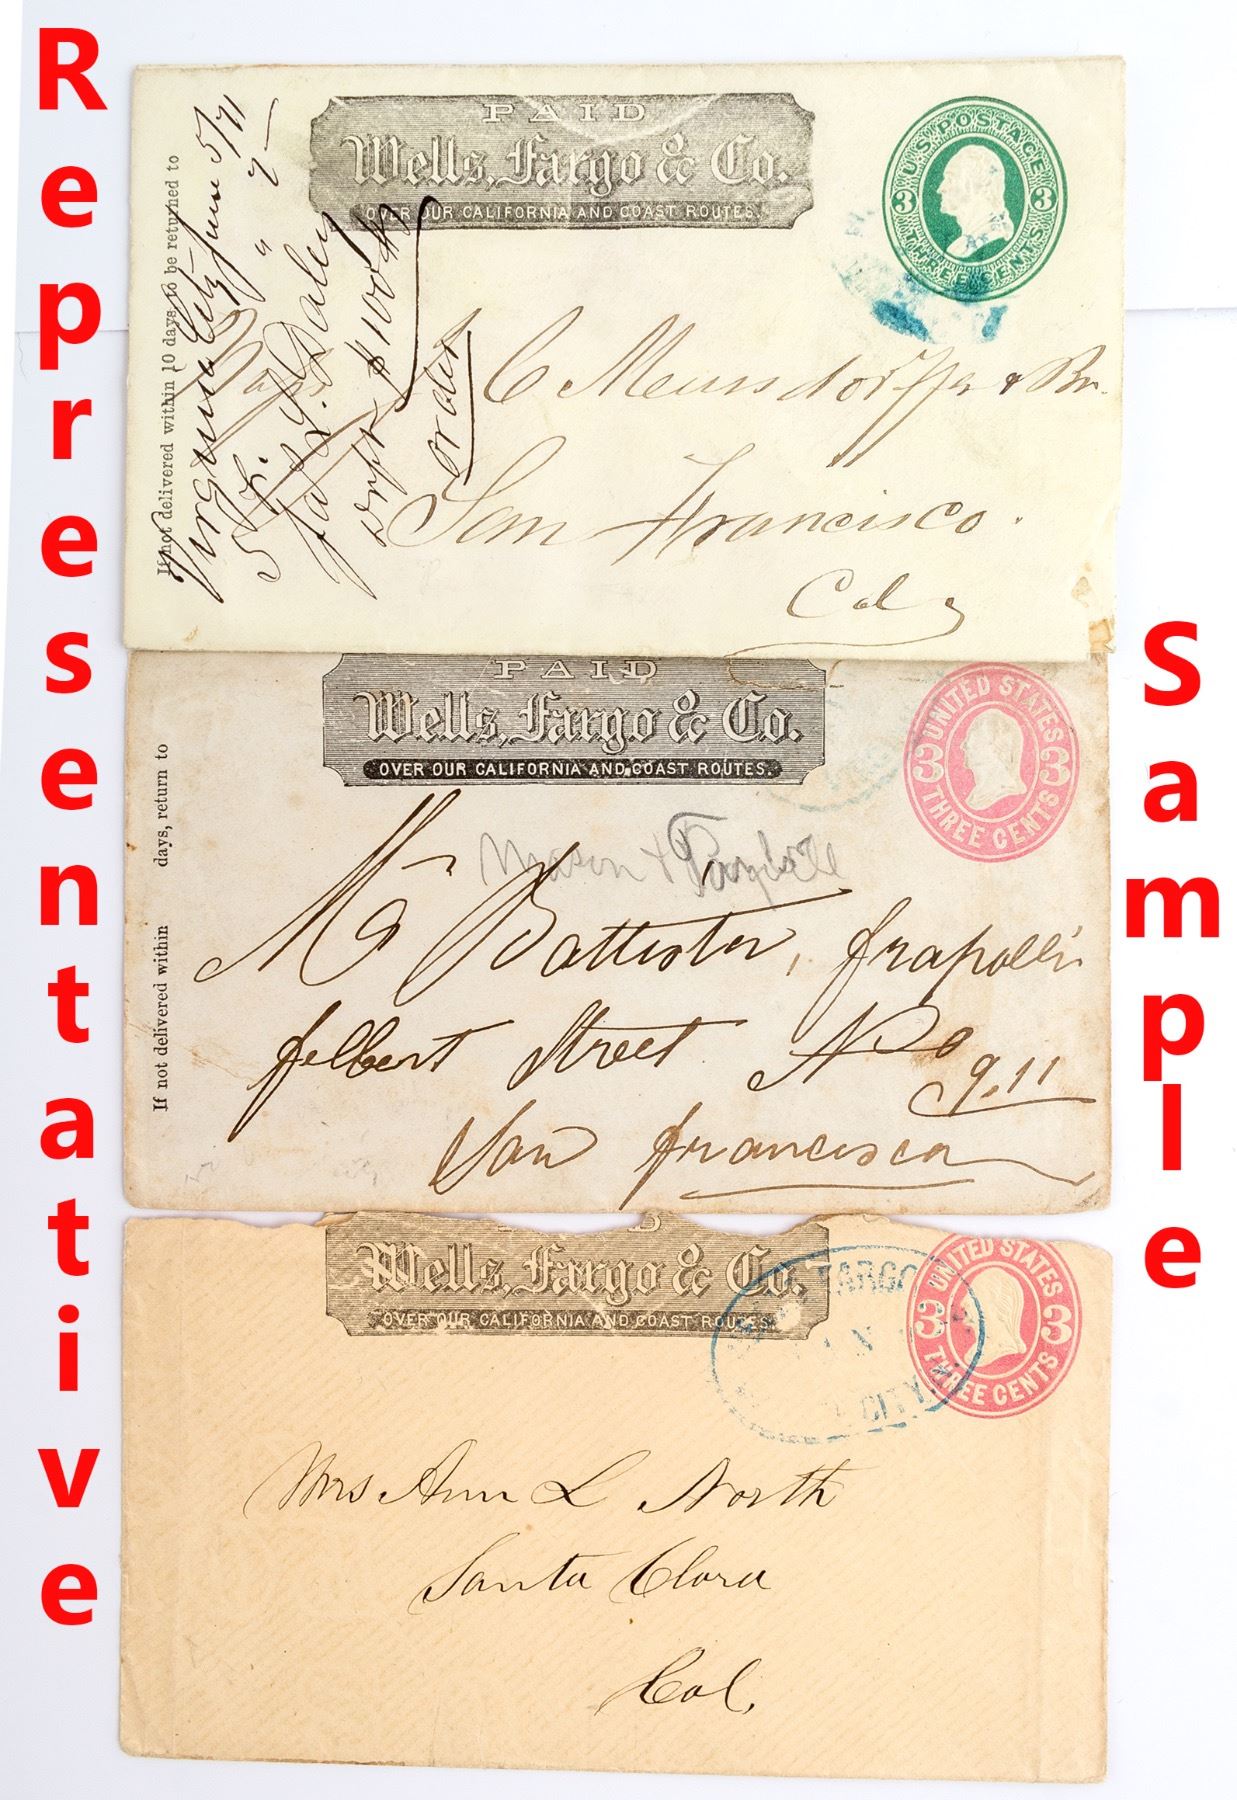 Representative
Sample
PAID
Wells, Fargo & Co.
OVER OUR CALIFORNIA AND COAST ROUTES.
U.S. POSTAGE
3 3
THREE CENTS
If not delivered within 10 days, to be returned to
Virginia City June 5/71
$100
order
C Meussdorffer & Bro.
San Francisco.
Cal
PAID
Wells, Fargo & Co.
OVER OUR CALIFORNIA AND COAST ROUTES.
UNITED STATES
3 3
THREE CENTS
If not delivered within days, return to
Mason &
Mr Battister, frapolli
felbert Street No
911
San francisco
Wells, Fargo & Co.
OVER OUR CALIFORNIA AND COAST ROUTES.
UNITED STATES
3 3
THREE CENTS
FARGO
CITY
Mrs Ann L North
Santa Clara
Cal.